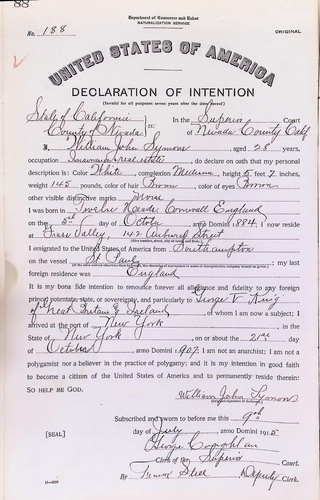 88
Department of Commerce and Labor
NATURALIZATION SERVICE
No. 188
ORIGINAL
UNITED STATES OF AMERICA
DECLARATION OF INTENTION
(Invalid for all purposes seven years after the date hereof)
State of California
ss: In the Superior Court
County of Nevada of Nevada County Calif
I, William John Symons, aged 28 years,
occupation Insurance & real estate, do declare on oath that my personal
description is: Color White, complexion Medium, height 5 feet 7 inches,
weight 145 pounds, color of hair Brown, color of eyes Brown
other visible distinctive marks none
I was born in Twelve Heads Cornwall England
on the 5th day of October, anno Domini 1884; I now reside
at Grass Valley, 142 Auburn Street
(Give number, street, city or town, and State.)
I emigrated to the United States of America from Southampton
on the vessel St. Paul; my last
foreign residence was England
It is my bona fide intention to renounce forever all allegiance and fidelity to any foreign
prince, potentate, state, or sovereignty, and particularly to George V King
of Great Britain & Ireland, of whom I am now a subject; I
arrived at the port of New York, in the
State of New York, on or about the day
of October, anno Domini 1907; I am not an anarchist; I am not a
polygamist nor a believer in the practice of polygamy; and it is my intention in good faith
to become a citizen of the United States of America and to permanently reside therein:
SO HELP ME GOD.
William John Symons
(Original signature of declarant.)
Subscribed and sworn to before me this 9th
[SEAL] day of July, anno Domini 191
George Coughlan
Clerk of the Superior Court.
By Deputy Clerk.